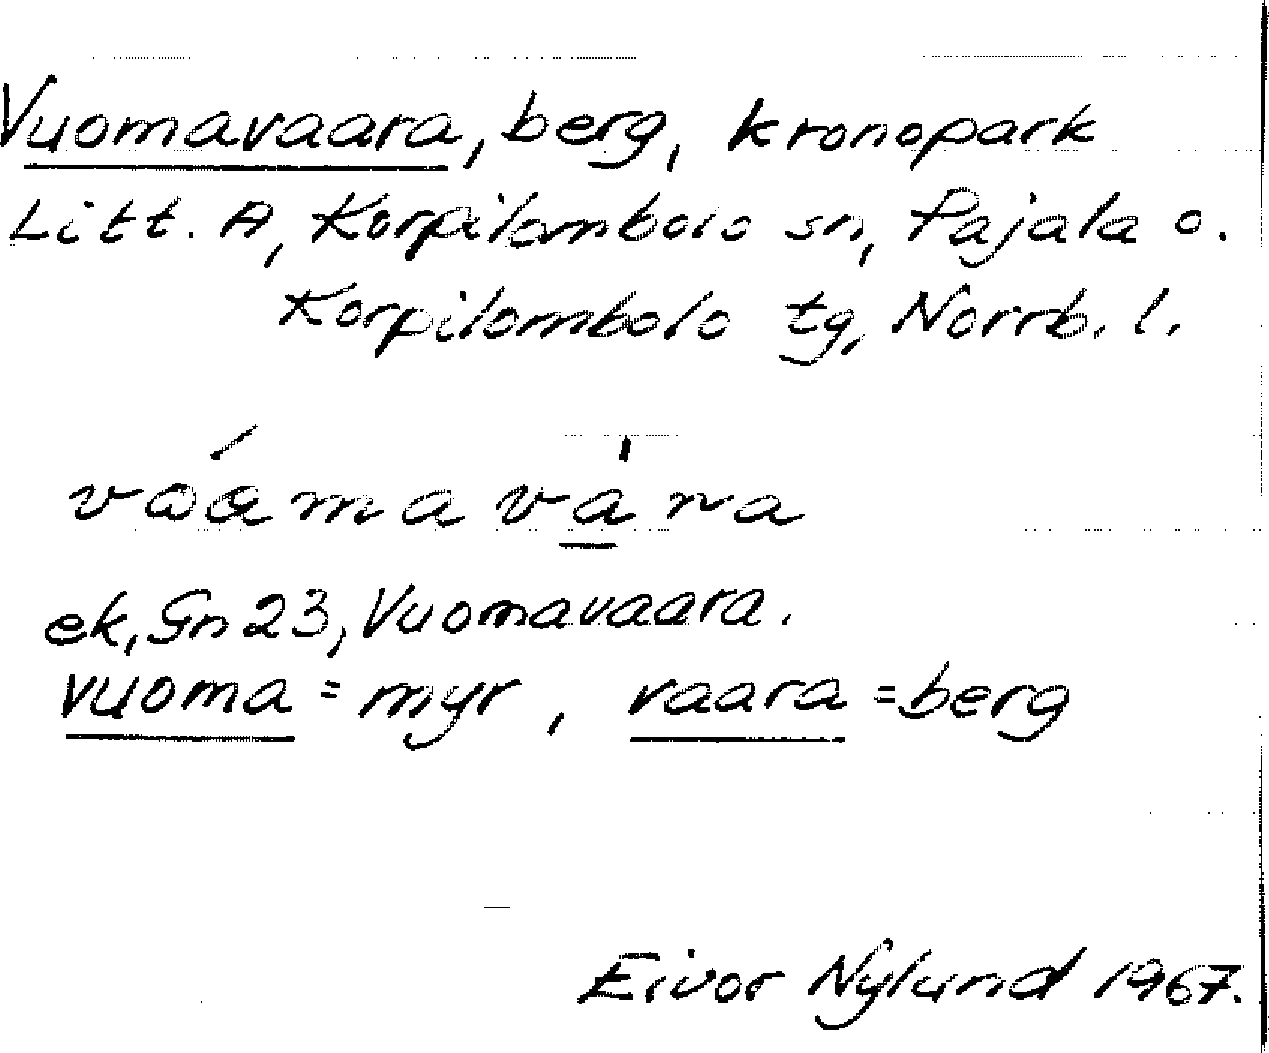 Vuomavaara, berg, kronopark
Litt. A, Korpilombolo sn, Pajala o.
Korpilombolo tg, Norrb. l.
ek, Gn 23, Vuomavaara.
vuoma = myr, vaara = berg
Eivor Nylund 1967.